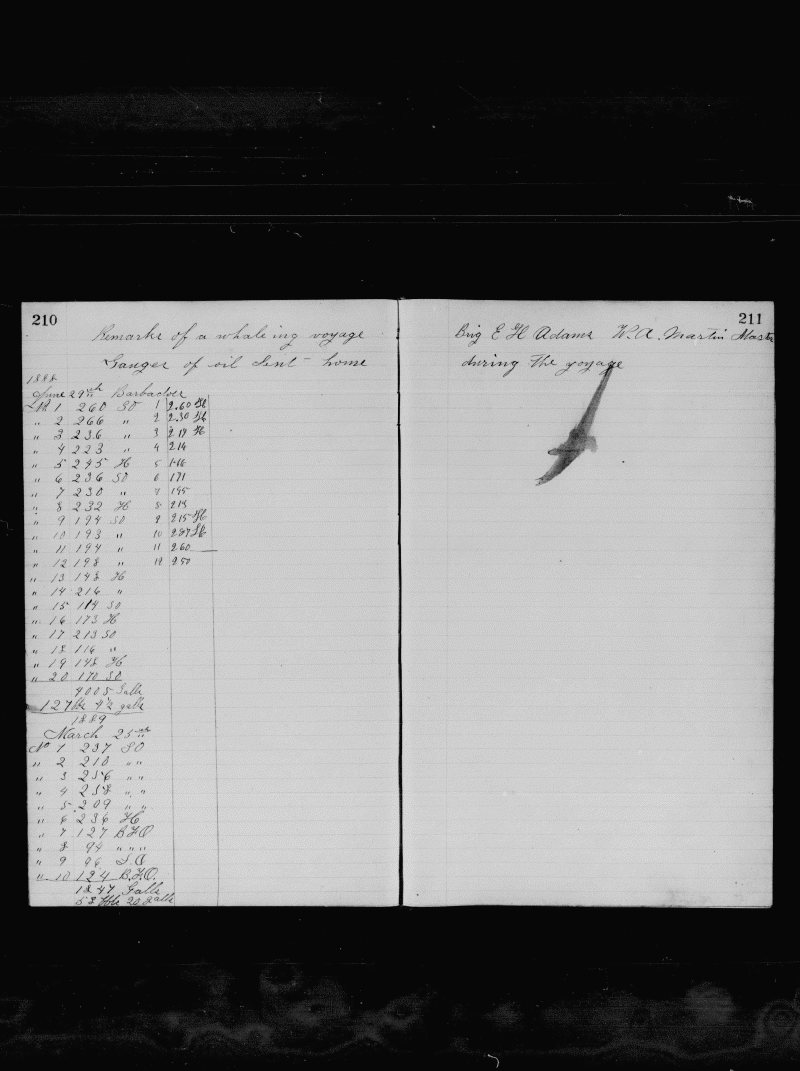 210
Remarks of a whaleing voyage
Gauges of oil sent home
1888
June 29th Barbadoes
No 1 260 SO 1 260
" 2 266 " 2 230
" 3 236 " 3 219 H
" 4 223 " 4 214
" 5 245 H 5
" 6 236 SO 6 171
" 7 230 " 7 195
" 8 232 H 8 219
" 9 194 SO 9 215
" 10 193 " 10
" 11 194 " 11 260
" 12 198 " 12 250
" 13 148 H
" 14 214 "
" 15 114 SO
" 16 173 H
" 17 213 SO
" 18 116 "
" 19 148 H
" 20 170 SO
4005 Galls
127 bbls 4½ galls
1889
March 25th
No 1 237 SO
" 2 210 " "
" 3 256 " "
" 4 258 " "
" 5 209 " "
" 6 236 H
" 7 127 B.F.O
" 8 94 " " "
" 9 96 S.O
" 10 124 B.F.O.
1847 Galls
58 bbls 20 galls
211
Brig E H Adams W.A. Martin Master
during the voyage